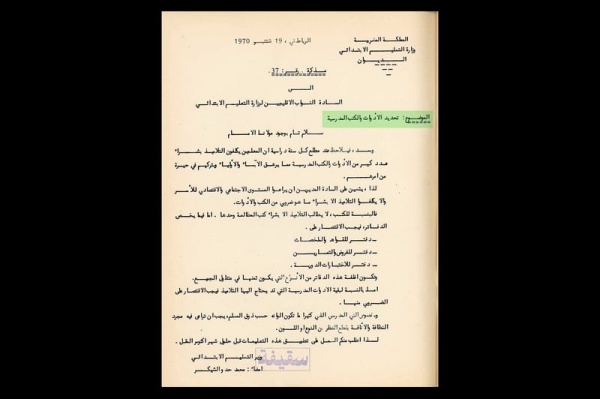 المملكة المغربية
وزارة التعليم الابتدائي
الديوان
الرباط في ، 19 شتنبر 1970
مذكرة رقم : 37.
الى
السادة النواب الاقليميين لوزارة التعليم الابتدائي
الموضوع : تحديد الأدوات والكتب المدرسية
سلام تام بوجود مولانا الامام
وبعد ، فيلاحظ عند مطلع كل سنة دراسية ان المعلمين يكلفون التلاميذ بشراء
عدد كبير من الادوات والكتب المدرسية مما يرهق الآباء والاولياء ويتركهم في حيرة
من امرهم .
لذا ، يتعين على السادة المديرين ان يراعوا المستوى الاجتماعي والاقتصادي للأسر
والا يكلفوا التلاميذ الا بشراء ما هو ضروري من الكتب والأدوات .
فبالنسبة للكتب ، لا يطالب التلاميذ الا بشراء كتب المطالعة وحدها . اما فيما يخص
الدفاتر ، فيجب الاقتصار على .
ـ دفتر للقواعد والملخصات
ـ دفتر للفروض والتمارين
ـ دفتر للاختبارات الدورية .
وتكون اغلفة هذه الدفاتر من الانوع التي يكون ثمنها في متناول الجميع .
اما بالنسبة لبقية الادوات المدرسية التي قد يحتاج اليها التلاميذ فيجب الاقتصار على
الضروري منها .
و بخصوص الزي المدرسي الذي كثيرا ما تكون الوانه حسب ذوق المعلم ، يجب ان تراعى فيه مجرد
النظافة والاناقة بقطع النظر عن النوع او اللون .
لذا اطلب منكم العمل على تطبيق هذه التعليمات قبل حلول شهر اكتوبر المقبل .
وزير التعليم الابتدائي
امضاء : محمد حدو الشيكر
سقيفة